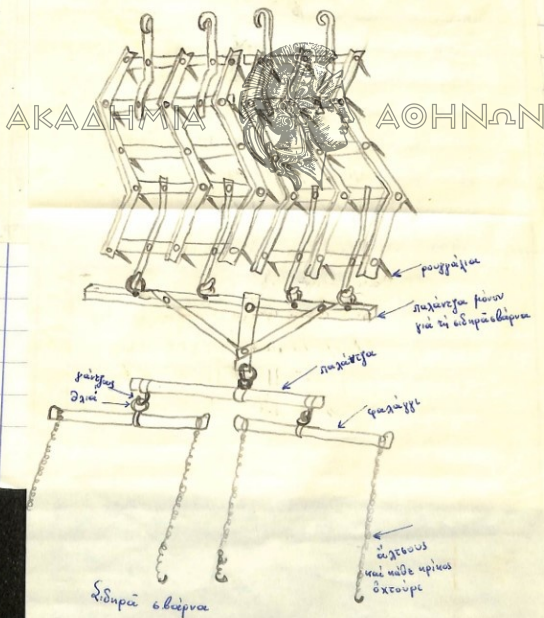 ΑΚΑΔΗΜΙΑ ΑΘΗΝΩΝ
παλάντζα μόνον
γιά τή σιδηρᾶ σβάρνα
παλάντζα
γάντζος
θλιά
φαλάγγι
ἅλτσους
καί κάθε κρίκος
ὀχτούρι
Σιδηρᾶ σβάρνα